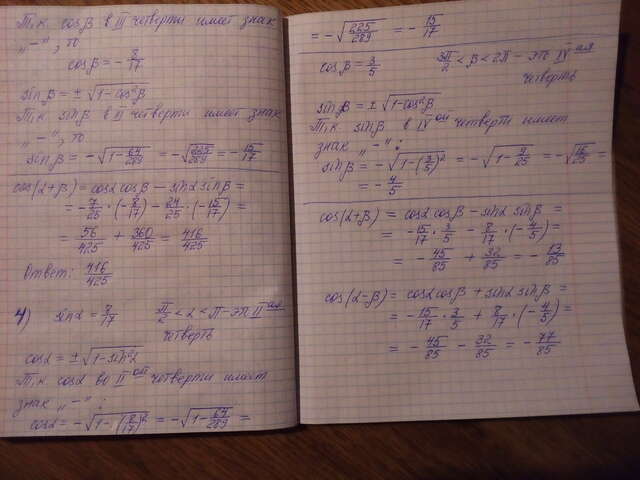 Т.к. cosβ в III четверти имеет знак
„–", то
cosβ = – 8/17
sinβ = ± √(1–cos²β)
Т.к. sinβ в III четверти имеет знак
„–", то
sinβ = –√(1– 64/289) = –√(225/289) = – 15/17
cos(α+β) = cosα cosβ – sinα sinβ =
= – 7/25 · (– 8/17) – 24/25 · (– 15/17) =
= 56/425 + 360/425 = 416/425
Ответ: 416/425
4) sinα = 8/17 π/2 < α < π – это II ая
четверть
cosα = ± √(1–sin²α)
Т.к. cosα во II ой четверти имеет
знак „–":
cosα = –√(1–(8/17)²) = –√(1– 64/289) =
= –√(225/289) = – 15/17
cosβ = 3/5 3π/2 < β < 2π – это IV ая
четверть
sinβ = ± √(1–cos²β)
Т.к. sinβ в IV ой четверти имеет
знак „–":
sinβ = –√(1–(3/5)²) = –√(1– 9/25) = –√(16/25) =
= – 4/5
cos(α+β) = cosα cosβ – sinα sinβ =
= – 15/17 · 3/5 – 8/17 · (– 4/5) =
= – 45/85 + 32/85 = – 13/85
cos(α–β) = cosα cosβ + sinα sinβ =
= – 15/17 · 3/5 + 8/17 · (– 4/5) =
= – 45/85 – 32/85 = – 77/85